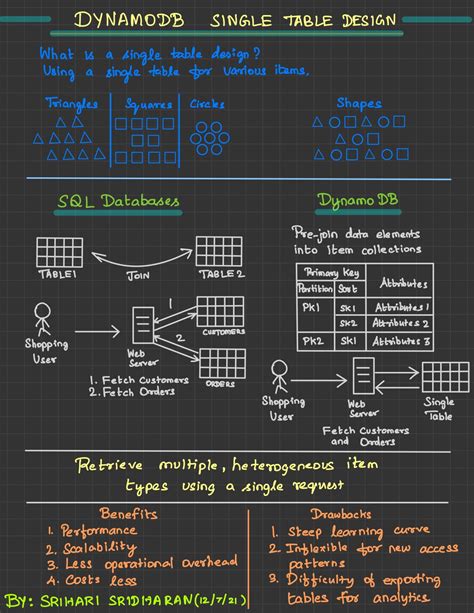 DYNAMODB SINGLE TABLE DESIGN
What is a single table design?
Using a single table for various items.
Triangles Squares Circles Shapes
SQL Databases
DynamoDB
TABLE1 JOIN TABLE2
Pre-join data elements
into Item collections
Primary Key Attributes
Partition Sort
PK1 SK1 Attributes 1
SK2 Attributes 2
PK2 SK1 Attributes 3
1
2
CUSTOMERS
ORDERS
Shopping
User
Web
Server
1. Fetch Customers
2. Fetch Orders
Shopping
User
Web
Server
Single
Table
Fetch Customers
and Orders
Retrieve multiple, heterogeneous item
types using a single request
Benefits
1. Performance
2. Scalability
3. Less operational overhead
4. Costs less
Drawbacks
1. Steep learning curve
2. Inflexible for new access
patterns
3. Difficulty of exporting
tables for analytics
BY: SRIHARI SRIDHARAN (12/7/21)